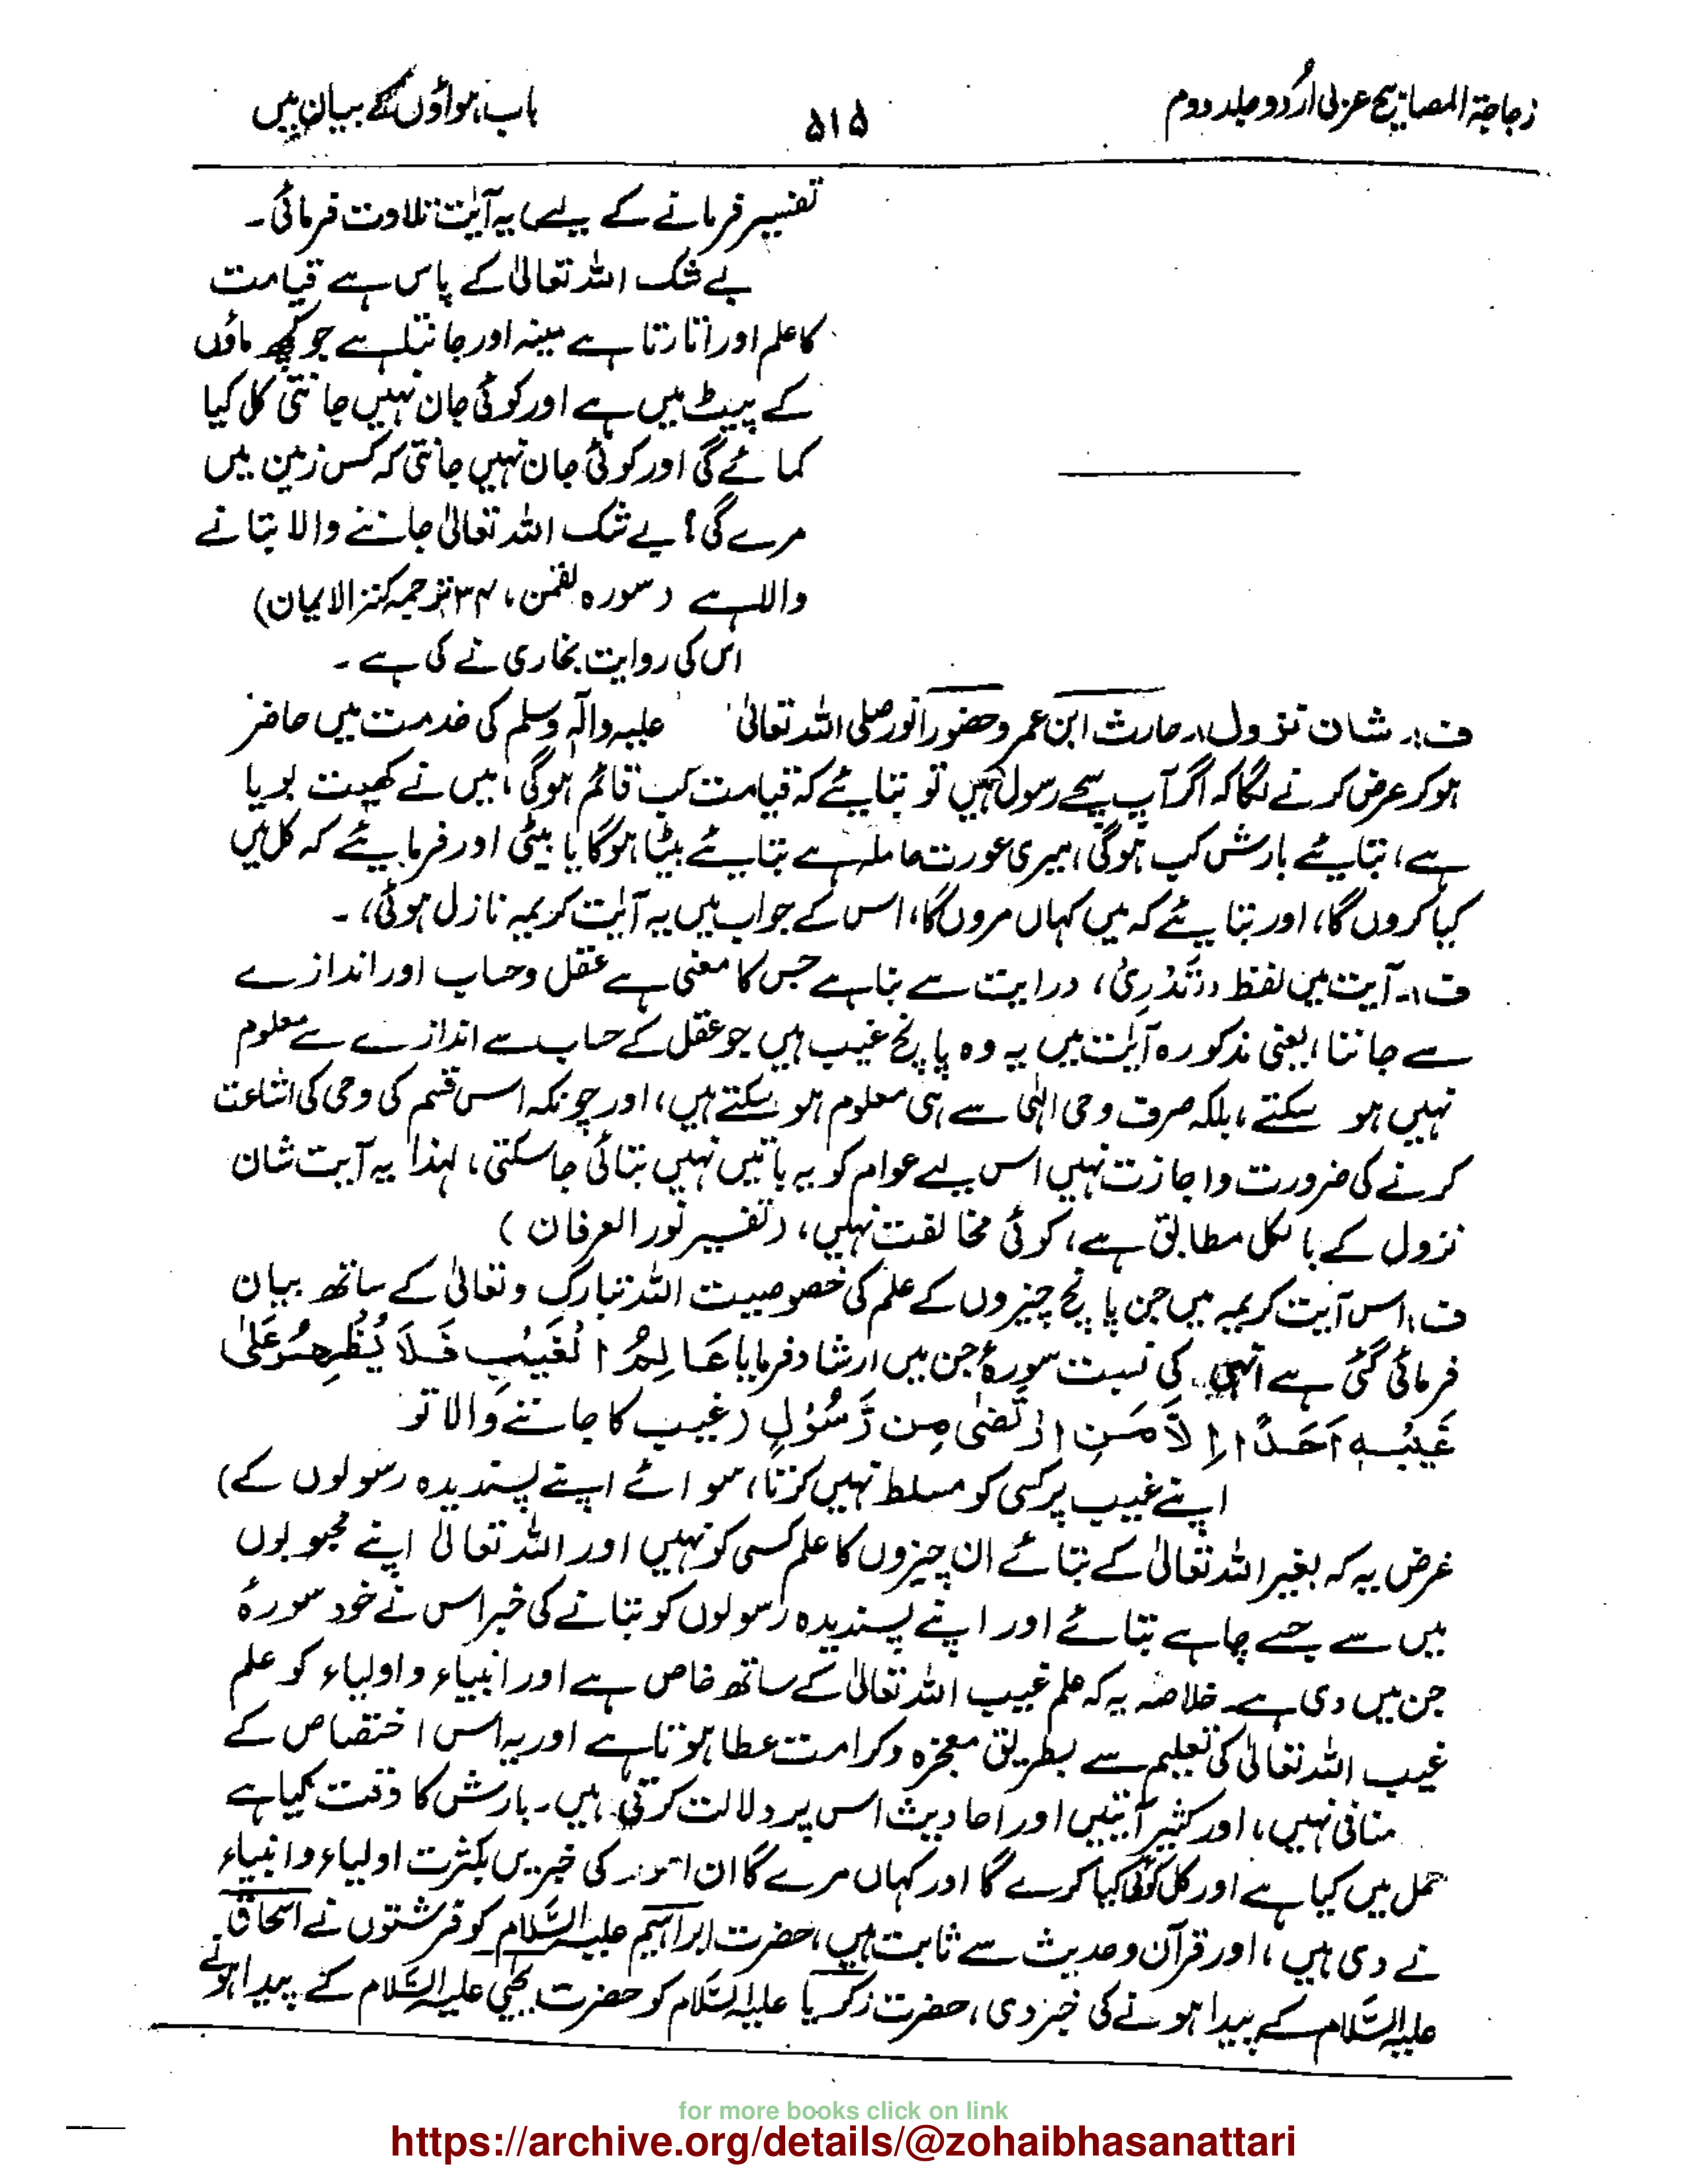 زجاجۃ المصابیح عربی اُردو جلد دوم
۵۱۵
باب، ہواؤں کے بیان میں
تفسیر فرمانے کے لیے) یہ آیت تلاوت فرمائی۔
بے شک اللہ تعالیٰ کے پاس ہے قیامت
کا علم اور اتارتا ہے مینہ اور جانتا ہے جو کچھ ماؤں
کے پیٹ میں ہے اور کوئی جان نہیں جانتی کل کیا
کمائے گی اور کوئی جان نہیں جانتی کہ کس زمین میں
مرے گی؟ بے شک اللہ تعالیٰ جاننے والا بتانے
والا ہے (سورہ لقمٰن، ۳۴ ترجمہ کنز الایمان)
اس کی روایت بخاری نے کی ہے۔
ف:۔ شان نزول:۔ حارث ابن عمرو حضور انور صلی اللہ تعالیٰ علیہ والہٖ وسلم کی خدمت میں حاضر
ہو کر عرض کرنے لگا کہ اگر آپ سچے رسول ہیں تو بتایئے کہ قیامت کب قائم ہوگی، میں نے کھیت بویا
ہے، بتایئے بارش کب ہوگی، میری عورت حاملہ ہے بتایئے بیٹا ہوگا یا بیٹی اور فرمایئے کہ کل میں
کیا کروں گا، اور بتایئے کہ میں کہاں مروں گا، اس کے جواب میں یہ آیت کریمہ نازل ہوئی، ۔
ف:۔ آیت میں لفظ ,,تَدْرِیْ، درایت سے بنا ہے جس کا معنی ہے عقل وحساب اور اندازے
سے جاننا، یعنی مذکورہ آیت میں یہ وہ پانچ غیب ہیں جو عقل کے حساب سے اندازے سے معلوم
نہیں ہو سکتے، بلکہ صرف وحی الٰہی سے ہی معلوم ہو سکتے ہیں، اور چونکہ اس قسم کی وحی کی اشاعت
کرنے کی ضرورت واجازت نہیں اس لیے عوام کو یہ باتیں نہیں بتائی جا سکتی، لہٰذا یہ آیت شان
نزول کے بالکل مطابق ہے، کوئی مخالفت نہیں، (تفسیر نور العرفان)
ف:۔ اس آیت کریمہ میں جن پانچ چیزوں کے علم کی خصوصیت اللہ تبارک وتعالیٰ کے ساتھ بیان
فرمائی گئی ہے انہی کی نسبت سورۂ جن میں ارشاد فرمایا عَالِمُ الْغَیْبِ فَلَا یُظْھِرُ عَلٰی
غَیْبِہٖ اَحَدًا اِلَّا مَنِ ارْتَضٰی مِنْ رَّسُوْلٍ (غیب کا جاننے والا تو
اپنے غیب پر کسی کو مسلط نہیں کرتا، سوائے اپنے پسندیدہ رسولوں کے)
غرض یہ کہ بغیر اللہ تعالیٰ کے بتائے ان چیزوں کا علم کسی کو نہیں اور اللہ تعالیٰ اپنے محبوبوں
میں سے جسے چاہے بتائے اور اپنے پسندیدہ رسولوں کو بتانے کی خبر اس نے خود سورۂ
جن میں دی ہے۔ خلاصہ یہ کہ علم غیب اللہ تعالیٰ کے ساتھ خاص ہے اور انبیاء واولیاء کو علم
غیب اللہ تعالیٰ کی تعلیم سے بطریق معجزہ وکرامت عطا ہوتا ہے اور یہ اس اختصاص کے
منافی نہیں، اور کثیر آیتیں اور احادیث اس پر دلالت کرتی ہیں۔ بارش کا وقت کیا ہے
حمل میں کیا ہے اور کل کوئی کیا کرے گا اور کہاں مرے گا ان امور کی خبریں بکثرت اولیاء وانبیاء
نے دی ہیں، اور قرآن وحدیث سے ثابت ہیں، حضرت ابراہیم علیہ السَّلام کو فرشتوں نے اسحاق
علیہ السَّلام کے پیدا ہونے کی خبر دی، حضرت زکریا علیہ السَّلام کو حضرت یحیٰی علیہ السَّلام کے پیدا ہونے
for more books click on link
https://archive.org/details/@zohaibhasanattari